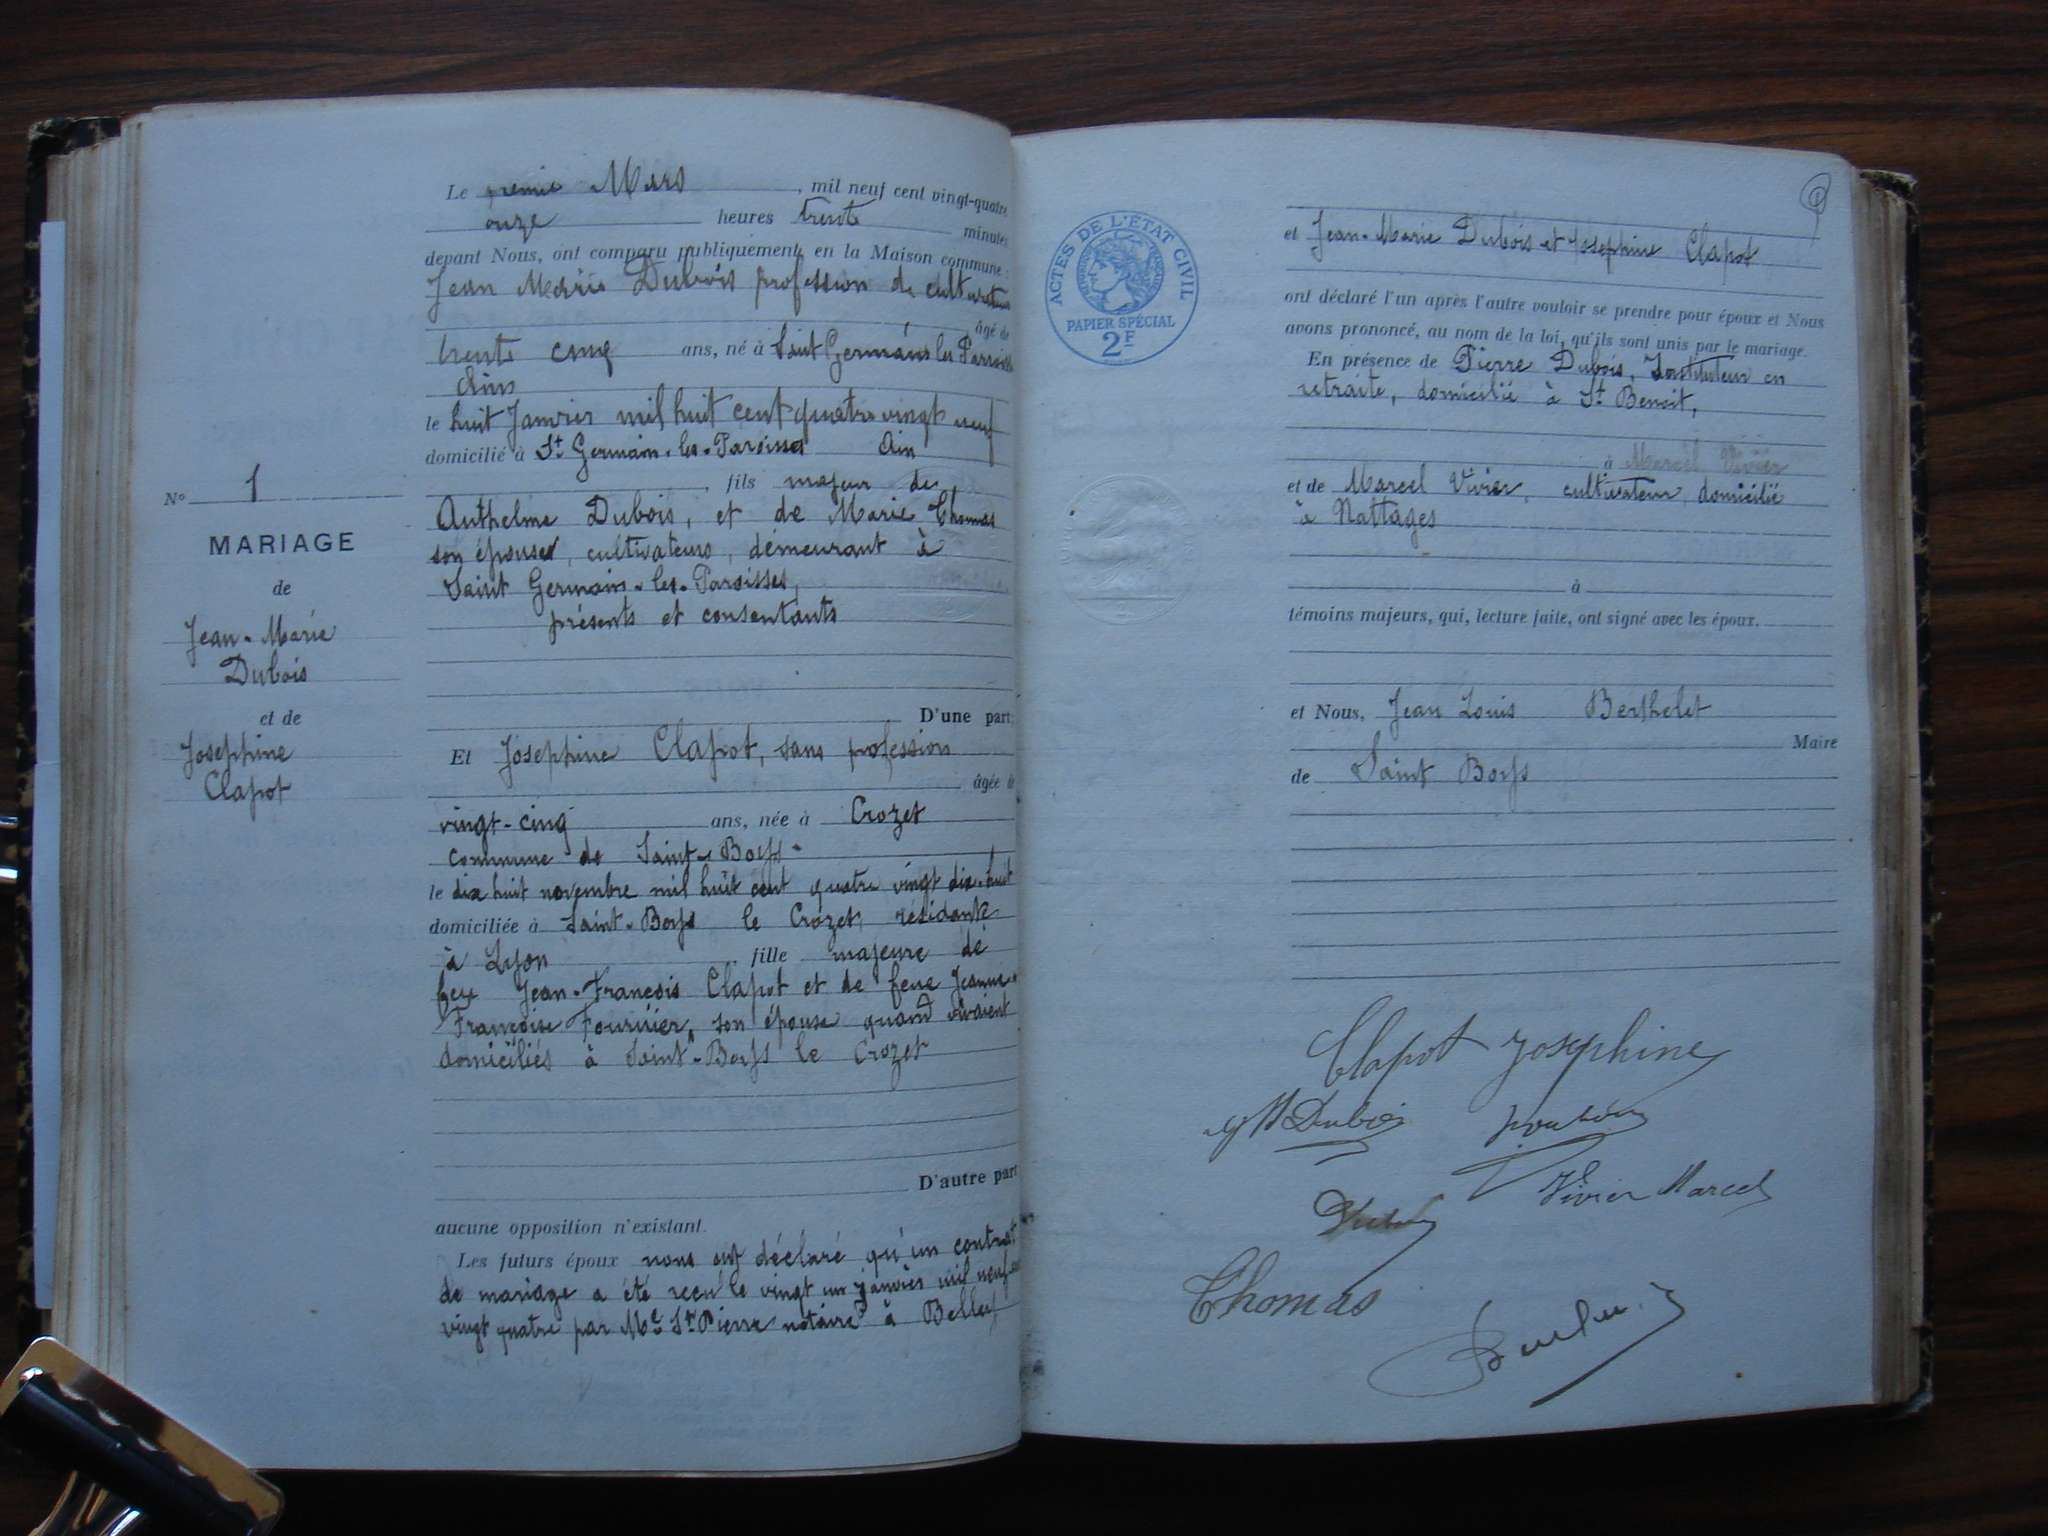 Le premie Mars , mil neuf cent vingt-quatre
onze heures trente minutes
devant Nous, ont comparu publiquement en la Maison commune :
Jean Marie Dubois profession de cultivateur
âgé de
trente cinq ans, né à Saint Germain les Paroisses
Ain
le huit Janvier mil huit cent quatre vingt neuf
domicilié à St Germain-les-Paroisses Ain
, fils majeur de
Anthelme Dubois, et de Marie Thomas
son épouse, cultivateurs, demeurant à
Saint Germain-les-Paroisses,
présents et consentants
D'une part;
Et Joséphine Clapot, sans profession
âgée de
vingt-cinq ans, née à Crozet
commune de Saint-Boys
le dix huit novembre mil huit cent quatre vingt dix-huit
domiciliée à Saint-Boys le Crozet, résidante
à Lyon fille majeure de
feu Jean-François Clapot et de feue Jeanne-
Françoise Fournier, son épouse quand vivaient
domiciliés à Saint-Boys le Crozet
D'autre part
aucune opposition n'existant.
Les futurs époux nous ont déclaré qu'un contrat
de mariage a été reçu le vingt un janvier mil neuf cent
vingt quatre par Me St Pierre notaire à Belley
No 1
MARIAGE
de
Jean-Marie
Dubois
et de
Joséphine
Clapot
1
ACTES DE L'ÉTAT CIVIL
RÉPUBLIQUE FRANÇAISE
PAPIER SPÉCIAL
2F
et Jean-Marie Dubois et Joséphine Clapot
ont déclaré l'un après l'autre vouloir se prendre pour époux et Nous
avons prononcé, au nom de la loi, qu'ils sont unis par le mariage.
En présence de Pierre Dubois, Instituteur en
retraite, domicilié à St Benoit,
à Marcel Vivier
et de Marcel Vivier, cultivateur, domicilié
à Nattages
à
témoins majeurs, qui, lecture faite, ont signé avec les époux.
et Nous, Jean Louis Berthelet
Maire
de Saint Boys
Clapot Josephine
JM Dubois
Vivier Marcel
Thomas